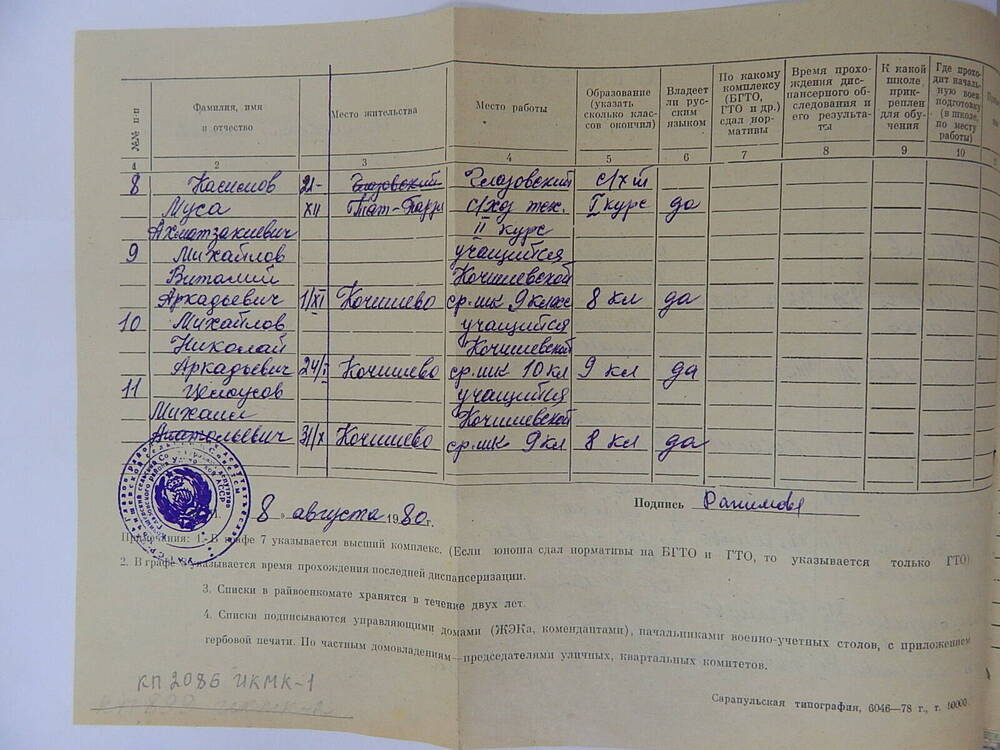 №№ п-п
Фамилия, имя
и отчество
Место жительства
Место работы
Образование
(указать
сколько клас-
сов окончил)
Владеет
ли рус-
ским
языком
По какому
комплексу
(БГТО,
ГТО и др.)
сдал нор-
мативы
Время прохо-
ждения дис-
пансерного об-
следования и
его результа-
ты
К какой
школе
прик-
реплен
для обу-
чения
Где прохо-
дит началь-
ную воен.
подготовку
(в школе,
по месту
работы)
1 2 3 4 5 6 7 8 9 10
8 Касимов 21- Глазовский Глазовский с/х й
Муса XII Тат-Парзи с/хоз тех. I курс да
Ахматзакиевич II курс
9 Михайлов учащийся
Виталий Кочишевской
Аркадьевич 1/XI Кочишево ср.шк 9 класс 8 кл да
10 Михайлов учащийся
Николай Кочишевской
Аркадьевич 24/I Кочишево ср.шк 10 кл 9 кл да
11 Целоусов учащийся
Михаил Кочишевской
Анатольевич 31/X Кочишево ср.шк 9 кл 8 кл да
Подпись
8 „ августа 1980 г.
Примечания: 1. В графе 7 указывается высший комплекс. (Если юноша сдал нормативы на БГТО и ГТО, то указывается только ГТО)
2. В графе 8 указывается время прохождения последней диспансеризации.
3. Списки в райвоенкомате хранятся в течение двух лет.
4. Списки подписываются управляющими домами (ЖЭКа, комендантами), начальниками военно-учетных столов, с приложением
гербовой печати. По частным домовладениям—председателями уличных, квартальных комитетов.
КП 2086 ИКМК-1
Сарапульская типография, 6046—78 г., т. 10000.